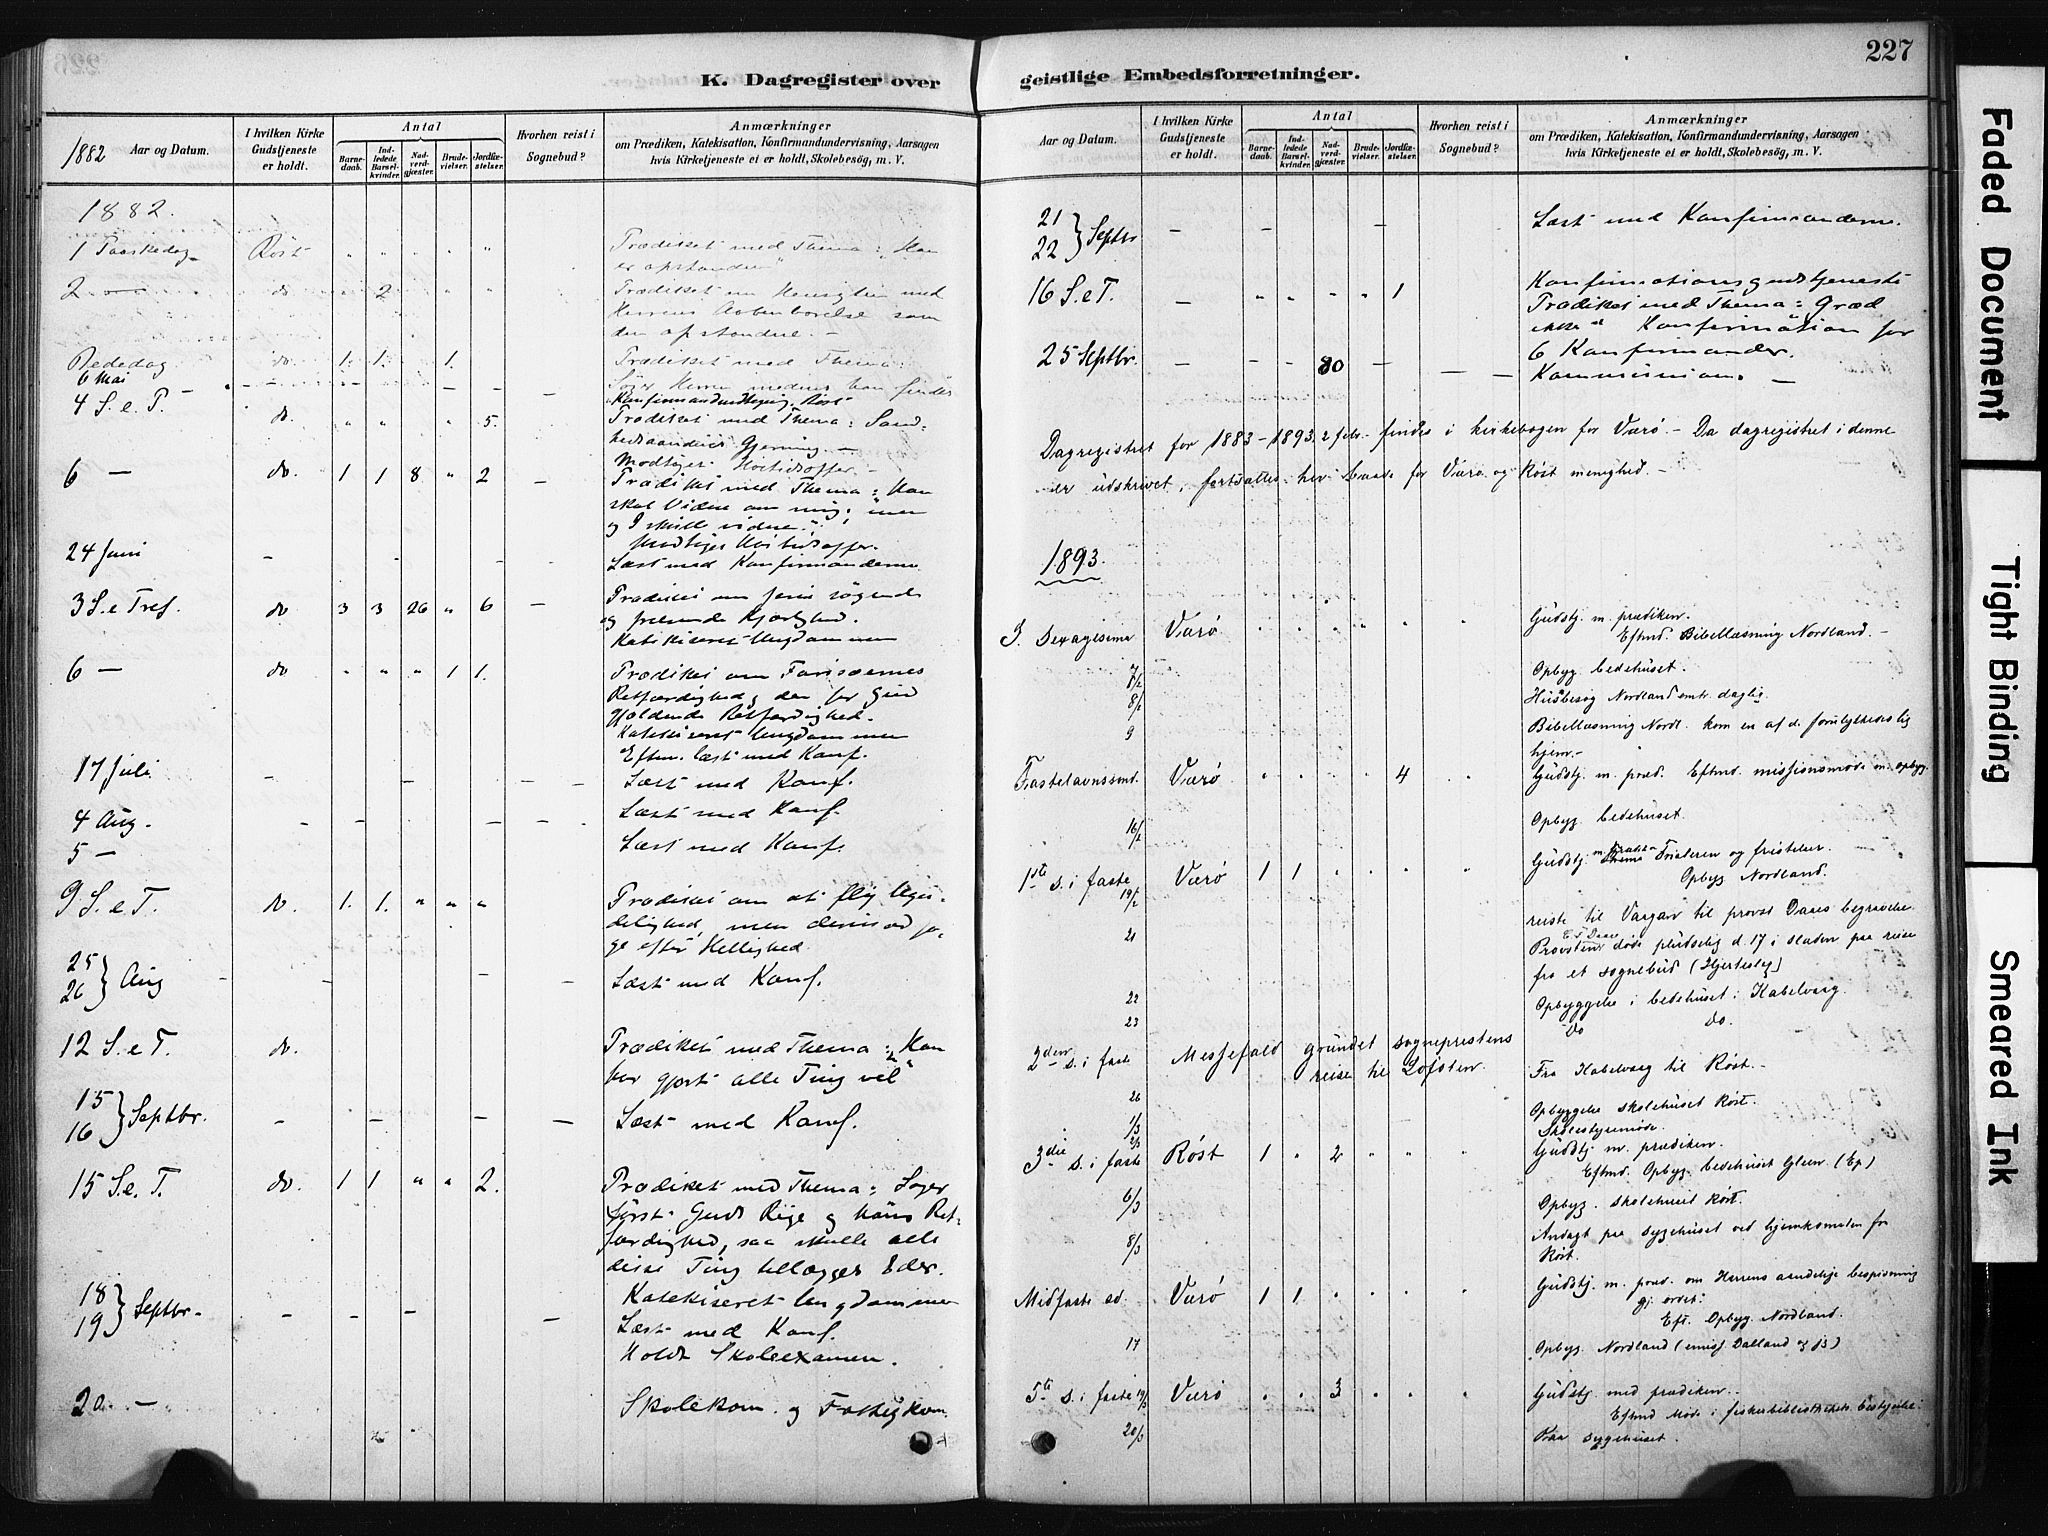 K. Dagregister over
1882
Aar og Datum.
I hvilken Kirke Gudstjeneste er holdt.
Antal
Barnedaab.
Indledede Barselkvinder.
Nadverdgjæster.
Brudevielser.
Jordfæstelser.
Hvorhen reist i Sognebud?
Anmærkninger
om Prædiken, Katekisation, Konfirmandundervisning, Aarsagen
hvis Kirketjeneste ei er holdt, Skolebesög, m. V.
1882.
1 Paaskedag Röst " " " " " Prædiket med Thema: "Han
er opstanden"
2 — do " 2 " " " Prædiket om
Herrens Aabenbarelse som
den opstandne. —
Bededag do 1. 1. 1. Prædiket med Thema:
Søger Herren medens han findes
6 Mai — — — — Konfirmandudtagning. Röst
4 S. e. P. do. " " " 5. Prædiket med Thema: Sand-
hedsaandens Gjerning. —
Modtoges Høitidsoffer. —
6 — do. 1 1 8 " 2 — Prædiket med Thema: Han
skal Vidne om mig; men
og I skulle vidne."
Modtoges Høitidsoffer.
24 Juni — — — Læst med Konfirmanderne
3 S. e Tref. do 3 3 26 " 6 — Prædiket om Jesu søgende
og frelsende Kjærlighed.
Katekiseret Ungdommen
6 — do " " " 1 1. Prædiket om Farisæernes
Retfærdighed og den for Gud
Gjældende Retfærdighed.
Katekiseret Ungdommen
Efterm. læst med Konf.
17 Juli — — — — Læst med Konf.
4 Aug. — — — — Læst med Konf.
5 — Læst med Konf.
9 S. e T. do. 1. 1. " " " Prædiket om at fly Ugu-
delighed, men derimod ja-
ge efter Hellighed.
25
26 } Aug — — — — Læst med Konf.
12 S. e T. do. Prædiket med Thema: "Han
har gjort alle Ting vel"
15
16 } Septbr. — — — — Læst med Konf.
15 S. e. T. do. 1 1 " " 2. Prædiket med Thema: Søger
først Guds Rige og hans Ret-
færdighed, saa skulle alle
disse Ting tillægges Eder.
Katekiseret Ungdommen
18
19 } Septbr. — — — — Læst med Konf.
Holdt Skoleexamen.
20 — Skolekom. og Fattigkom.
geistlige Embedsforretninger.
227
Aar og Datum.
I hvilken Kirke Gudstjeneste er holdt.
Antal
Barnedaab.
Indledede Barselkvinder.
Nadverdgjæster.
Brudevielser.
Jordfæstelser.
Hvorhen reist i Sognebud?
Anmærkninger
om Prædiken, Katekisation, Konfirmandundervisning, Aarsagen
hvis Kirketjeneste ei er holdt, Skolebesög, m. V.
21
22 } Septbr — — — Læst med Konfirmanderne.
16 S. e T. — " " " " 1 Konfirmationsgudstjeneste
Prædiket med Thema: Græd
ikke" Konfirmation for
6 Konfirmander.
25 Septbr. — — 80 — — — Kommunion. —
Dagregistret for 1883–1893 2 febr. findes i kirkebogen for Værö — Da dagregistret i denne
er udskrevet, fortsættes her baade for Værö og Röst menighed. —
1893.
S. Sexagesima Værö " " " " " " Gudstj. m. prædiken.
Eftmd. Bibellæsning Nordland. —
7/2 Opbyg. bedehuset.
8/2 Husbesøg Nordland omtr. daglig.
9 Bibellæsning Nordl. kom en af d. forulykkedes lig
hjem.—
Fastelavnssønd. Værö " " " " 4 " Gudstj. m. præd. Eftmd. missionsmøde m. opbyg.
16/2 Opbyg. bedehuset.
1ste s. i faste Værö 1 1 " " " " Gudstj. m. Prædiken Thema Fristeren og fristelser.
19/2 Opbyg Nordland.
21 reiste til Vaagan til provst Daaes begravelse.
Provsten døde pludselig d. 17 i sladen paa reise
fra et sognebud (Hjerteslag)
22 Opbyggelse i bedehuset i Kabelvaag.
23 do do.
2den s. i faste Messefald grundet sogneprestens
reise til Lofoten.
Fra Kabelvaag til Röst. —
26 Opbyggelse skolehuset Röst.
1/3 Skolestyremøde.
2/3
3die s. i faste Röst 1 " 2 " " " Gudstj. m. prædiken.
Eftmd. Opbyg. bedehuset Glean. (Ep)
6/3 Opbyg. skolehuset Röst.
8/3 Andagt paa sygehuset ved hjemkomsten fra
Röst.
Midfaste sd. Værö 1 1 " " " " Gudstj. m. præd. om Herrens aandelige bespisning
gj. ordet.
Eft. Opbyg. Nordland.
17 Opbyg. Nordland (emiss. Dalland og jeg)
5te s. i faste 19/3 Værö " " 3 " " " Gudstj. med prædiken.
Eftmd Møde i fiskerbibliothekets bestyrelse.
20/3 Paa sygehuset.
Faded Document
Tight Binding
Smeared Ink